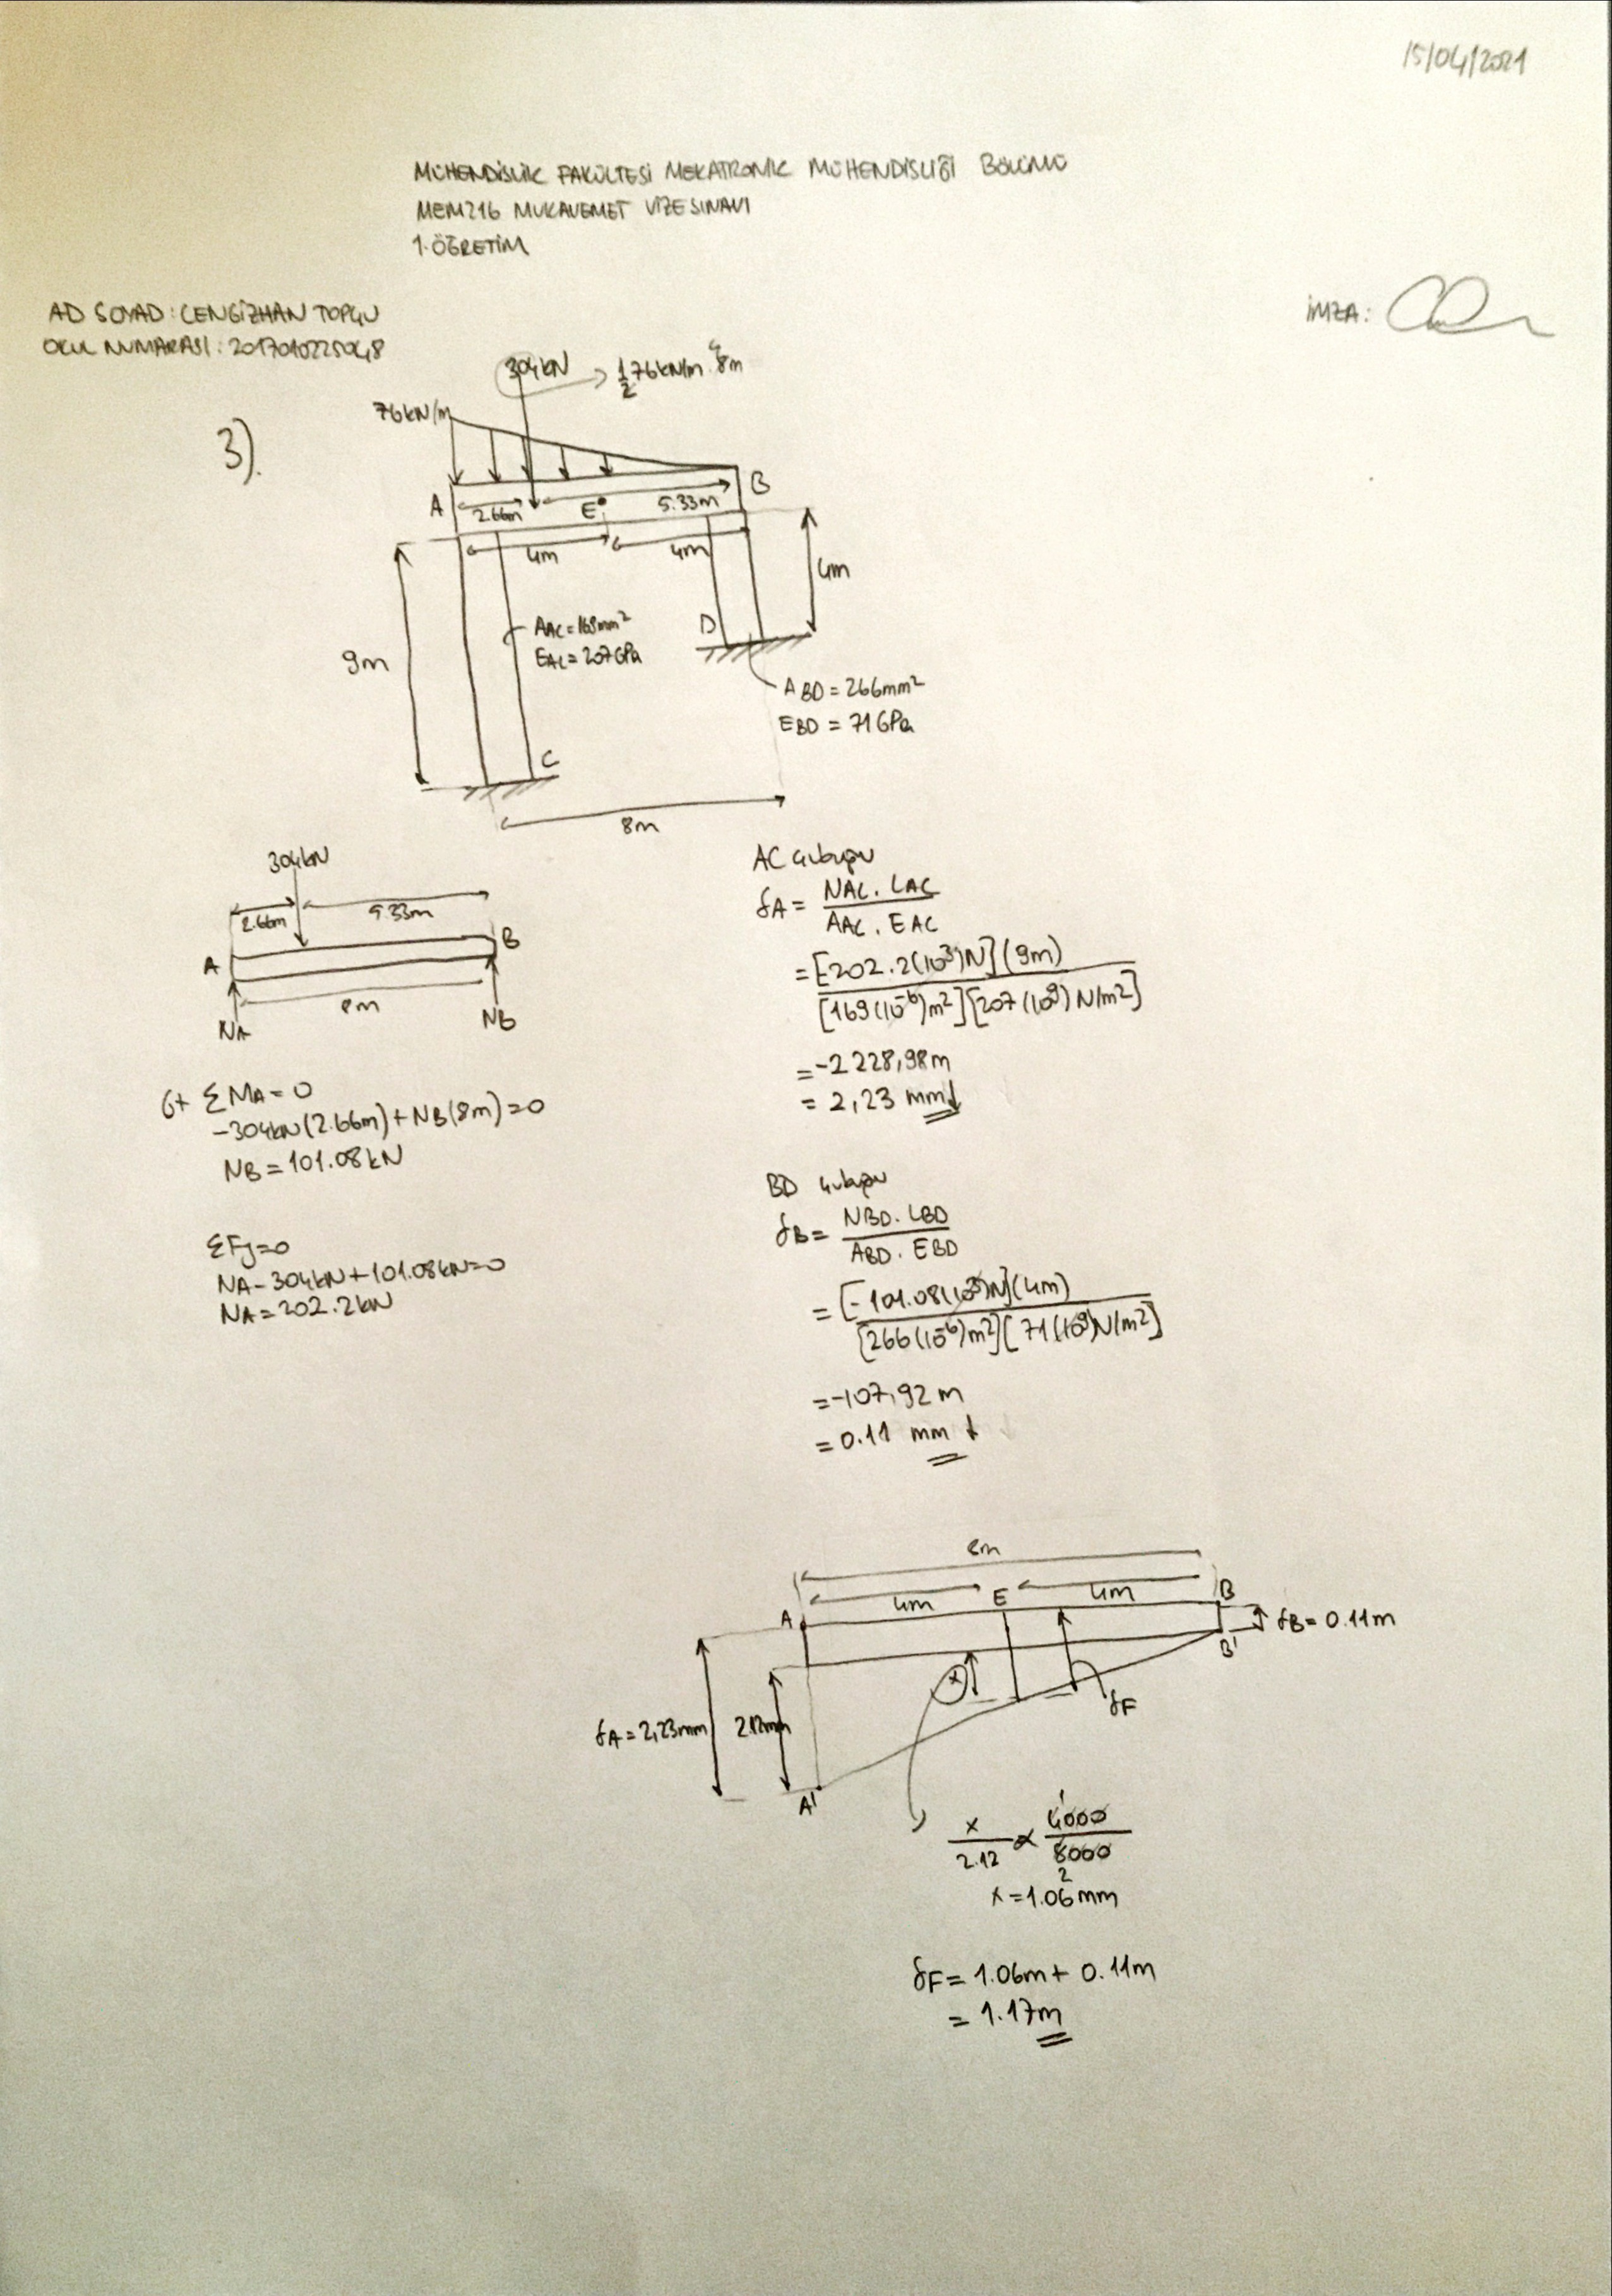 15/04/2021
MÜHENDİSLİK FAKÜLTESİ MEKATRONİK MÜHENDİSLİĞİ BÖLÜMÜ
MEM216 MUKAVEMET VİZE SINAVI
1.ÖĞRETİM
AD SOYAD: CENGİZHAN TOPÇU
OKUL NUMARASI: 2017010225048
İMZA:
3).
304kN → 1/2 76kN/m . 8m
76kN/m
A 2.66m E 5.33m B
4m 4m
4m
9m
AAC=168mm²
EAC=207GPa
D
ABD=266mm²
EBD=71GPa
C
8m
304kN
2.66m 5.33m
A B
8m
NA NB
↺+ ΣMA=0
-304kN(2.66m)+NB(8m)=0
NB=101.08kN
ΣFy=0
NA-304kN+101.08kN=0
NA=202.2kN
AC çubuğu
δA= NAC.LAC / AAC.EAC
=[-202.2(10³)N](9m) / [169(10⁻⁶)m²][207(10⁹)N/m²]
=-2228,98m
= 2,23 mm↓
BD çubuğu
δB= NBD.LBD / ABD.EBD
=[-101.08(10³)N](4m) / [266(10⁻⁶)m²][71(10⁹)N/m²]
=-107,92m
=0.11 mm↓
8m
4m E 4m
A B
δB=0.11m
B'
x
δF
δA=2,23mm 2.12mm
A'
x/2.12 ∝ 4000/8000
1
2
x=1.06mm
δF=1.06m+0.11m
=1.17m